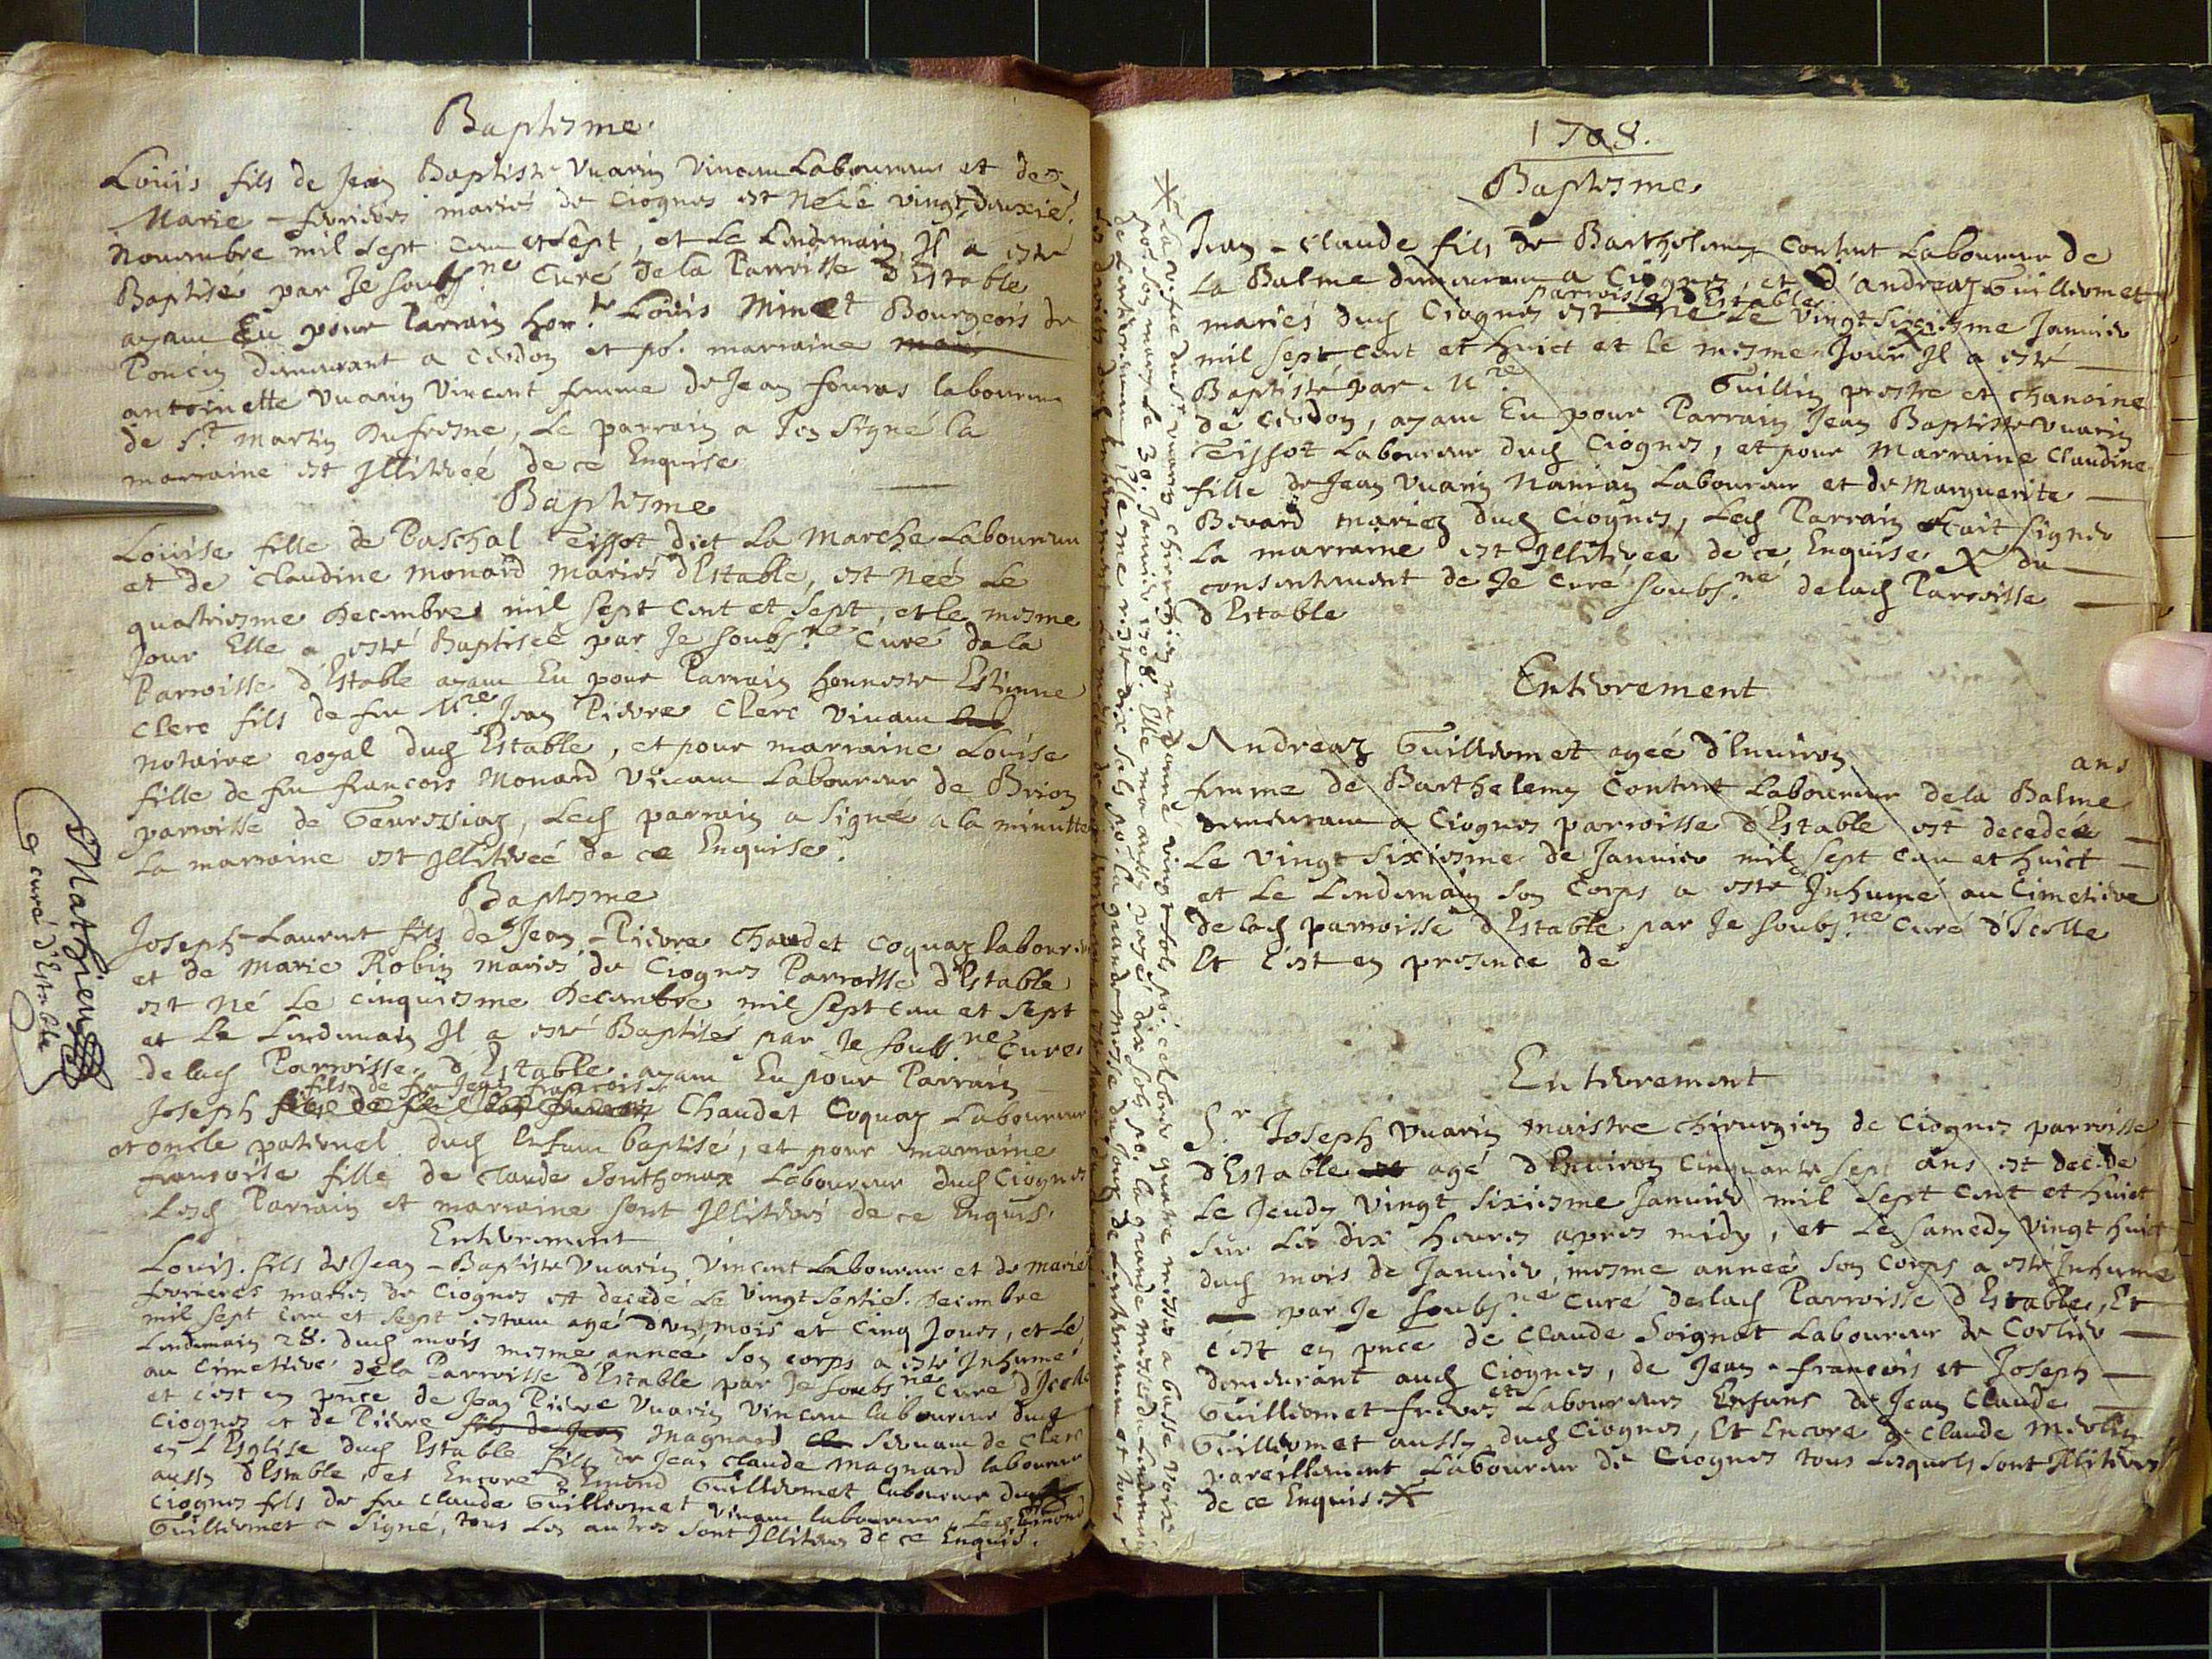 Baptesme
Loüis fils de Jean Baptiste Vuarin Vincent Laboureur et de
Marie fevrieres mariés de Ciognes est Né le vingt deuxie.
Nouembre mil sept cent et sept, et Le Lendemain Jl a este
Baptisé par Je soubs.né Curé de la Parroisse d'Estable
ayant Eu pour Parrain hon.te Loüis Minet Bourgeois de
Poncin demeurant a Cerdon et po.r marraine
antoinette Vuarin Vincent femme de Jean fouras laboureur
de S.t Martin Dufresne, Le parrain a signé la
marraine est Jlliterée de ce Enquise
Baptesme
Loüise fille de Paschal Teissot dict La Marche Laboureur
et de Claudine Monard mariés d'Estable, est neé Le
quatriesme Decembre mil sept cent et sept, et le mesme
Jour Elle a esté Baptiseé par Je soubs.né Curé de la
Parroisse d'Estable ayant Eu pour Parrain honneste Estienne
Clerc fils de feu M.re Jean Pierre Clerc vivant
notaire royal dud Estable, et pour marraine Loüise
fille de feu francois Monard Vivant Laboureur de Brion
parroisse de Geurossiaz, Led parrain a Signé a la minutte
La marraine est Jlliterée de ce Enquise.
Baptesme
Joseph-Laurent fils de Jean-Pierre Chaudet Coquaz laboureur
et de Marie Robin mariés de Ciognes Parroisse d'Estable
est Né Le cinquiesme Decembre mil sept cent et sept
et Le Lendemain Jl a esté Baptisé par Je soubs.né Curé
de lad Parroisse d'Estable ayant Eu pour Parrain
fils de feu Jean francois
Joseph Chaudet Coquaz Laboureur
et oncle paternel dud Enfant baptisé, et pour marraine
francoise fille de Claude Southonax Laboureur dud Ciognes
Lesd Parrain et marraine sont Jlliterés de ce Enquis.
Enterrement
Louis fils de Jean-Baptiste Vuarin Vincent Laboureur et de marie
fevrieres mariés de Ciognes est decedé Le vingt septie. Decembre
mil sept cent et sept estant agé d'un mois et cinq Jours, et Le
Lendemain 28. dud mois mesme année Son corps a esté Jnhumé
au Cimetiere de la Parroisse d'Estable par Je soubs.né Curé d'Jcelle
et c'est en pnce de Jean Pierre Vuarin Vincent laboureur dud
Ciognes et de Pierre fils de Jean Magnard servant de Clerc
en L'Esglise dud Estable fils de Jean Claude Magnard laboureur
aussy d'Estable, et Encore d'Emond Guillermet laboureur dud
Ciognes fils de feu Claude Guillermet vivant laboureur, Led Emond
Guillermet a Signé, tous Les autres sont Jlliteres de ce Enquis.
Mathieu
curé d'Estable
1708.
Baptesme
Jean-Claude fils de Bartholemy Content Laboureur de
La Balme demeurant a Ciognes, et d'andreaz Guillermet
parroisse d'Estable
mariés dud Ciognes est né Le vingt sixiesme Januier
mil sept cent et huict et Le mesme Jour Jl a esté
Baptisé par M.re Guillin prestre et chanoine
de Cerdon, ayant Eu pour Parrain Jean Baptiste Vuarin
Teissot Laboureur dud Ciognes, et pour Marraine Claudine
fille de Jean Vuarin Nanian Laboureur et de Marguerite
Bevard mariez dud Ciognes, Led Parrain scait signer
La marraine est Jlliterée de ce Enquise X du
consentement de Je Curé soubs.né de lad Parroisse
d'Estable
Enterrement
Andreaz Guillermet ageé d'Enuiron ans
femme de Barthelemy Content Laboureur de la Balme
demeurant a Ciognes parroisse d'Estable est decedeé
Le vingt sixiesme de Januier mil sept cent et huict
et Le Lendemain son Corps a esté Jnhumé au Cimetiere
de lad parroisse d'Estable par Je soubs.né Curé d'Jcelle
Et c'est en presence de
Enterrement
S.r Joseph Vuarin maistre chirurgien de Ciognes parroisse
d'Estable agé d'Enuiron cinquante sept ans est decedé
Le Jeudy vingt sixiesme Januier mil sept cent et huict
sur Les dix heures apres midy, et Le samedy vingt huict
dud mois de Januier, mesme anneé son corps a esté Jnhumé
par Je soubs.né Curé de lad Parroisse d'Estable, Et
c'est en pnce de Claude Soignat Laboureur de Corlier
demeurant aud Ciognes, de Jean-francois et Joseph
Guillermet freres Laboureurs Enfans de Jean Claude
Guillermet aussy dud Ciognes, Et Encore de Claude Merlin
pareillement Laboureur de Ciognes tous Lesquels sont Jlliterés
de ce Enquis.X
X La vefve dud S.r Vuarin chirurgien m'a donné vingt sols po.r celebrer quatre messes a basse voix
pour son mary Le 30. Januier 1708. Elle m'a aussy payé dix sols po.r la grande messe du Lendemain
de L'enterrement, Elle me reste dix sols po.r la grande messe du Jour de L'enterrement et tous